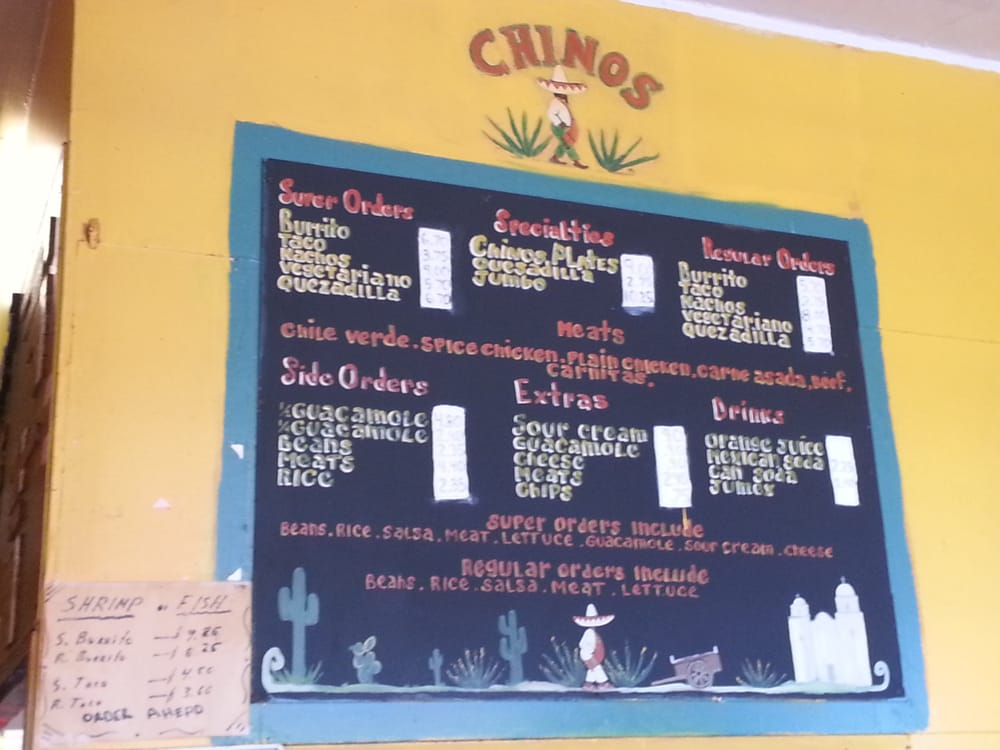 CHINOS
Super Orders
Burrito
Taco
Nachos
vegetariano
Quezadilla
6.70
3.75
9.00
5.70
6.70
Specialties
Chinos Plates
Quesadilla
Jumbo
Regular Orders
Burrito
Taco
Nachos
vegetariano
Quezadilla
Meats
Chile verde. Spice chicken. Plain chicken. carne asada, beef,
carnitas.
Side Orders
Guacamole
Guacamole
Beans
Meats
Rice
Extras
Sour cream
Guacamole
Cheese
Meats
Chips
Drinks
Orange Juice
Mexican Soda
Can Soda
Jumex
Super orders include
Beans. Rice. Salsa. Meat. Lettuce. Guacamole. Sour Cream. cheese
Regular orders include
Beans. Rice. Salsa. Meat. Lettuce
SHRIMP or FISH
S. Burrito
R. Burrito
S. Taco
R. Taco
ORDER AHEAD